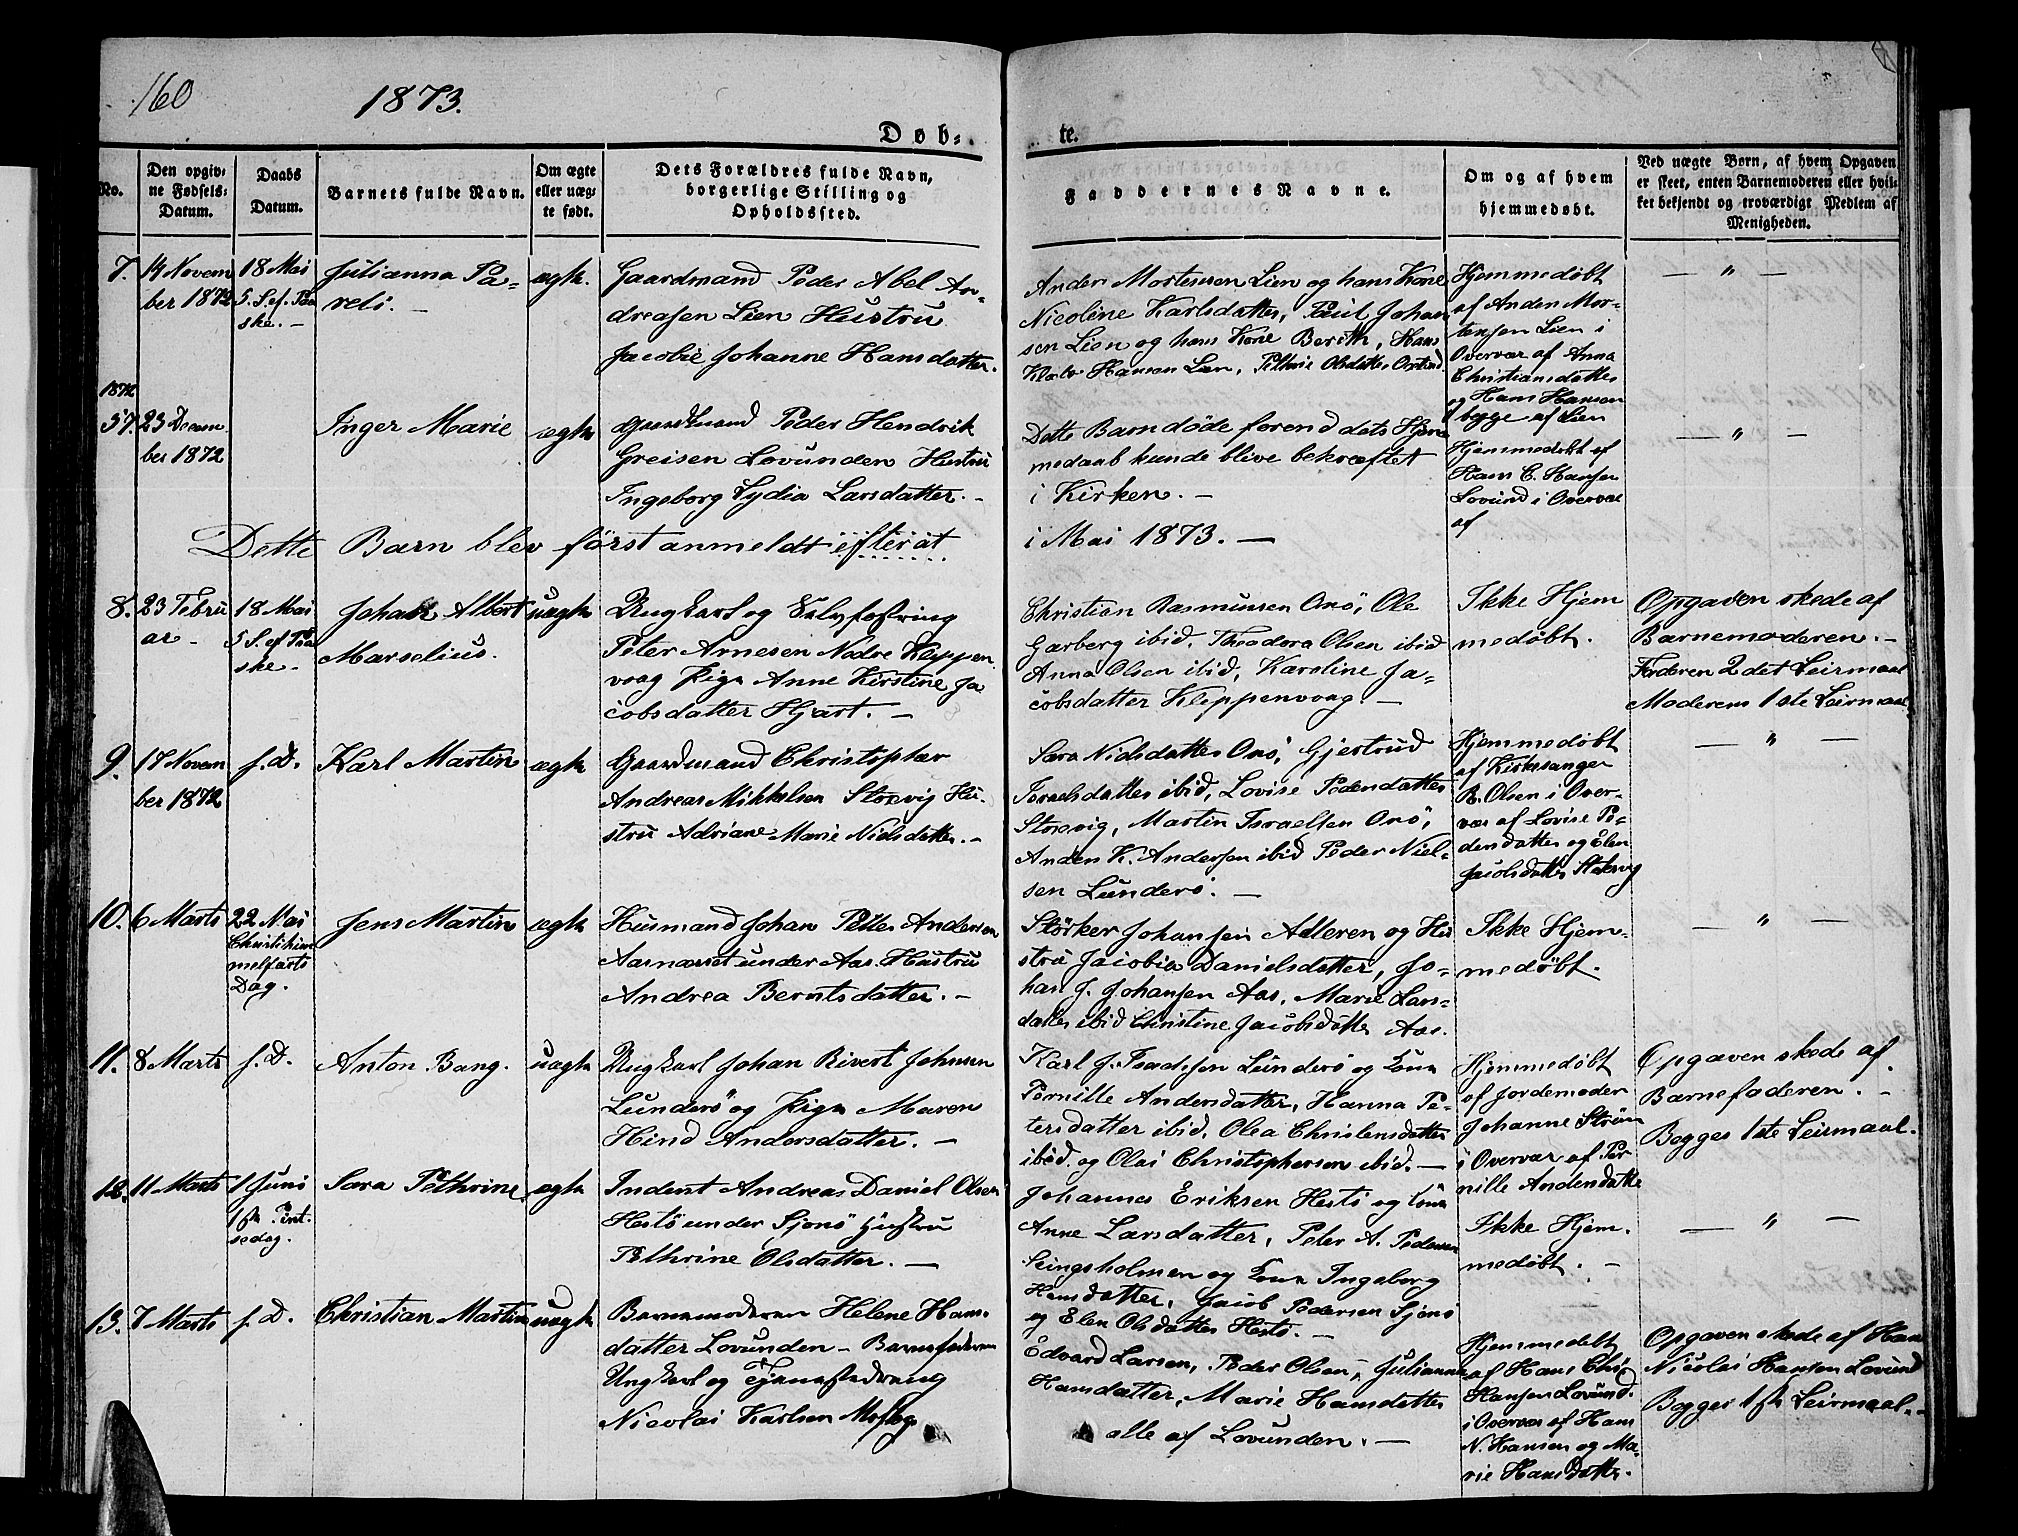 160
1873.
Døb-
te.
No.
Den opgiv-
ne Fødsels-
Datum.
Daabs
Datum.
Barnets fulde Navn.
Om ægte
eller uæg-
te født.
Dets Forældres fulde Navn,
borgerlige Stilling og
Opholdssted.
Faddernes Navne.
Om og af hvem
hjemmedøbt.
Ved uægte Børn, af hvem Opgaven
er skeet, enten Barnemoderen eller hvil-
ket bekjendt og troværdigt Medlem af
Menigheden.
7.
14 Novem
ber 1872
18 Mai
5. S. ef. Paa
ske. -
Julianna Pa-
relö. -
ægte.
Gaardmand Peder Abel An-
dreasen Lien Hustru
Jacobie Johanne Hansdatter.
Anders Mortensen Lien og hans Kone
Nicoline Karlsdatter, Paul Johan
sen Lien og hans Kone Berith, Hans
Hansen Lien, Olsdatter
Hjemmedøbt
af Anders Mor-
tensen Lien i
Overvær af Anna
Christiansdatter
og Hans Hansen
begge af Lien
— " —
1872
57.
23 Decem
ber 1872
Inger Marie
ægte
Gaardmand Peder Hendrik
Greisen Lovunden Hustru
Ingeborg Lydia Larsdatter. -
Dette Barn døde förend dets Hjem
medaab kunde blive bekræftet
i Kirken. -
Hjemmedøbt af
Hans C. Hansen
Lovund i Overvær
af
— " —
Dette Barn blev først anmeldt efterat
i Mai 1873. —
8.
23 Febru
ar -
18 Mai
5 S. ef Paa
ske. -
Johan Albert
Marselius.
uægte
Ungkarl og
Peter Arnesen Nedre Kleppen
vaag Pige Anne Kirstine Ja
cobsdatter Hjart. -
Christian Rasmussen Onö, Ole
Garberg ibid, Theodora Olsen ibid
Anna Olsen ibid, Karoline Ja-
cobsdatter Kleppenvaag. -
Ikke Hjem
medøbt.
Opgaven skede af
Barnemoderen. -
Faderen 2det Leirmaal
Moderens 1ste Leirmaal
9.
17 Novem
ber 1872
s. D.
Karl Martin
ægte
Gaardmand Christopher
Andreas Mikkelsen Storvig Hu-
stru Adriane Marie Nielsdatter. -
Sara Nielsdatter Onö, Gjertrud
Israelsdatter ibid, Lovise Pedersdatter
Storvig, Martin Israelsen Onö,
Anders K. Andersen ibid Peder Niel-
sen Lunderö. -
Hjemmedøbt
af Kirkesanger
B. Olsen i Over-
vær af Lovise Pe-
dersdatter og Elen
Jacobsdatter
— " —
10.
6 Marts
22 Mai
Christi him
melfarts
Dag.
Jens Martin
ægte
Husmand Johan Petter Andersen
Aasnæsset under Aas. Hustru
Andrea Berntsdatter. -
Störker Johansen Adleren og Hu
stru Jacobia Danielsdatter, Jo-
han J. Johansen Aas, Marie Lars-
datter ibid Christine Jacobsdatter Aas.
Ikke Hjem-
medøbt.
— " —
11.
8 Marts
s. D.
Anton Bang.
uægte
Ungkarl Johan Rivert Johnsen
Lunderö og Pige Maren
Hind Andersdatter. -
Karl J. Lunderö og Kone
Pernille Andersdatter, Hanna Pe-
tersdatter ibid, Olea Christensdatter
ibid. og Olai Christophersen ibid. —
Hjemmedøbt
af Jordemoder
Johanne Ström
i Overvær af Per
nille Andersdatter
Opgaven skede af
Barnefaderen. -
Begges 1ste Leirmaal.
12.
11 Marts
1 Juni
1ste Pint-
sedag.
Sara Pethrine
ægte
Inderst Andreas Daniel Olsen
Hestö under Sjonö Hustru
Pethrine Olsdatter. —
Johannes Eriksen Hestö og Kone
Anne Larsdatter, Peter A. Pedersen
og Kone Ingeborg
Hansdatter, Jacob Pedersen Sjonö
og Elen Olsdatter Hestö. -
Ikke Hjem-
medøbt. -
— " —
13.
7 Marts
s. D.
Christian Martin
uægte
Barnemoderen Helene Hans-
datter Lovunden - Barnefaderen
Ungkarl og
Nicolai Karlsen
Edvard Larsen, Peder Olsen, Julianne
Hansdatter, Marie Hansdatter
alle af Lovunden. —
Hjemmedøbt
af Hans Chr.
Hansen Lovund.
i Overvær af Hans
N. Hansen og Ma-
rie Hansdatter.
Opgaven skede af Hans
Nicolai Hansen Lovund
Begges 1ste Leirmaal. -